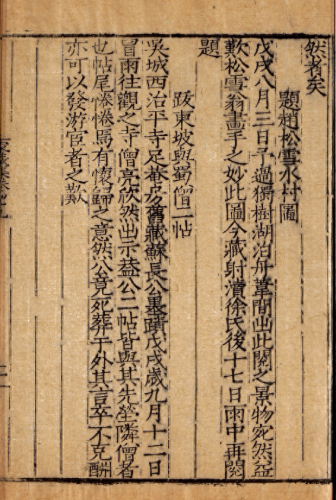 然者矣
題趙松雪水村圖
戊戌八月三日予過獨樹湖泊舟葦間出此閱之景物宛然益
歎松雪翁畫手之妙此圖今藏射瀆徐氏後十七日雨中再閱
題
跋東坡與蜀僧二帖
吳城西治平寺足菴房舊藏蘇長公墨蹟戊戌歲九月十二日
冒雨往觀之寺僧亮欣然出示蓋公二帖皆與其先塋隣僧者
也帖尾惓惓焉有懷歸之意然公竟死葬于外其言卒不克酬
亦可以發游宦者之歎